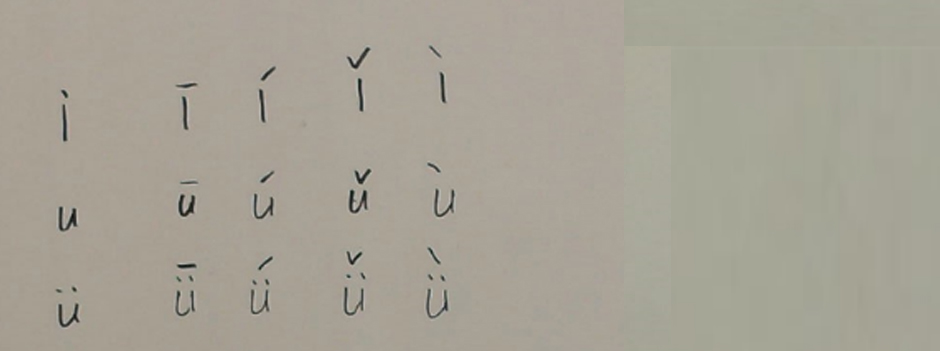 i ī í ǐ ì
u ū ú ǔ ù
ü ǖ ǘ ǚ ǜ